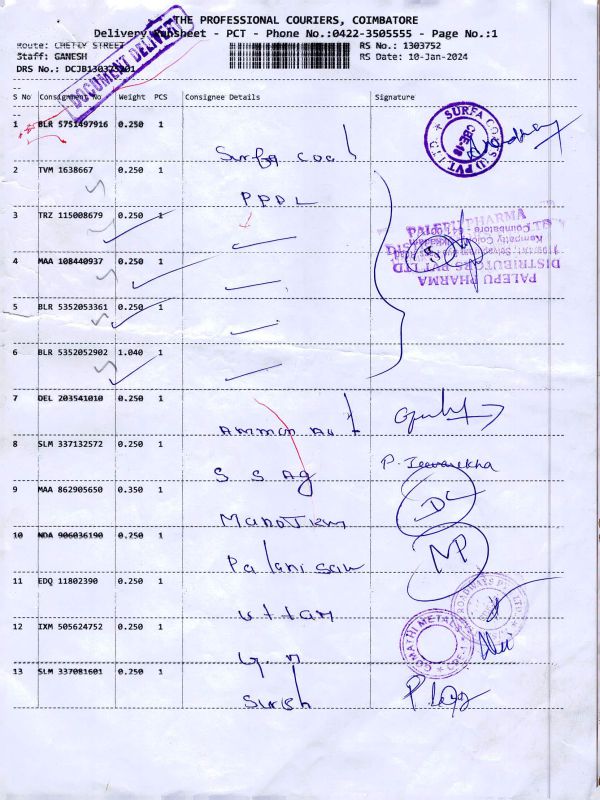 THE PROFESSIONAL COURIERS, COIMBATORE
Delivery Runsheet - PCT - Phone No.:0422-3505555 - Page No.:1
Route: CHETTY STREET RS No.: 1303752
Staff: GANESH RS Date: 10-Jan-2024
DRS No.: DCJB1303752
DOCUMENT DELIVERY
S No Consignment No Weight PCS Consignee Details Signature
1 BLR 5751497916 0.250 1
SURFA COATS (I) PVT LTD CBE-18
Surfa Coat
2 TVM 1638667 0.250 1
PPDL
3 TRZ 115008679 0.250 1
PALEPU PHARMA DISTRIBUTORS PVT LTD
4 MAA 108440937 0.250 1
5 BLR 5352053361 0.250 1
6 BLR 5352052902 1.040 1
7 DEL 203541010 0.250 1
Amman
8 SLM 337132572 0.250 1
S S Ag P. Jeevarekha
9 MAA 862905650 0.350 1
10 NDA 906036190 0.250 1
Palani
11 EDQ 11802390 0.250 1
Uttam
12 IXM 505624752 0.250 1
GOMATHI METALS CBE-1
13 SLM 337081601 0.250 1
Suresh